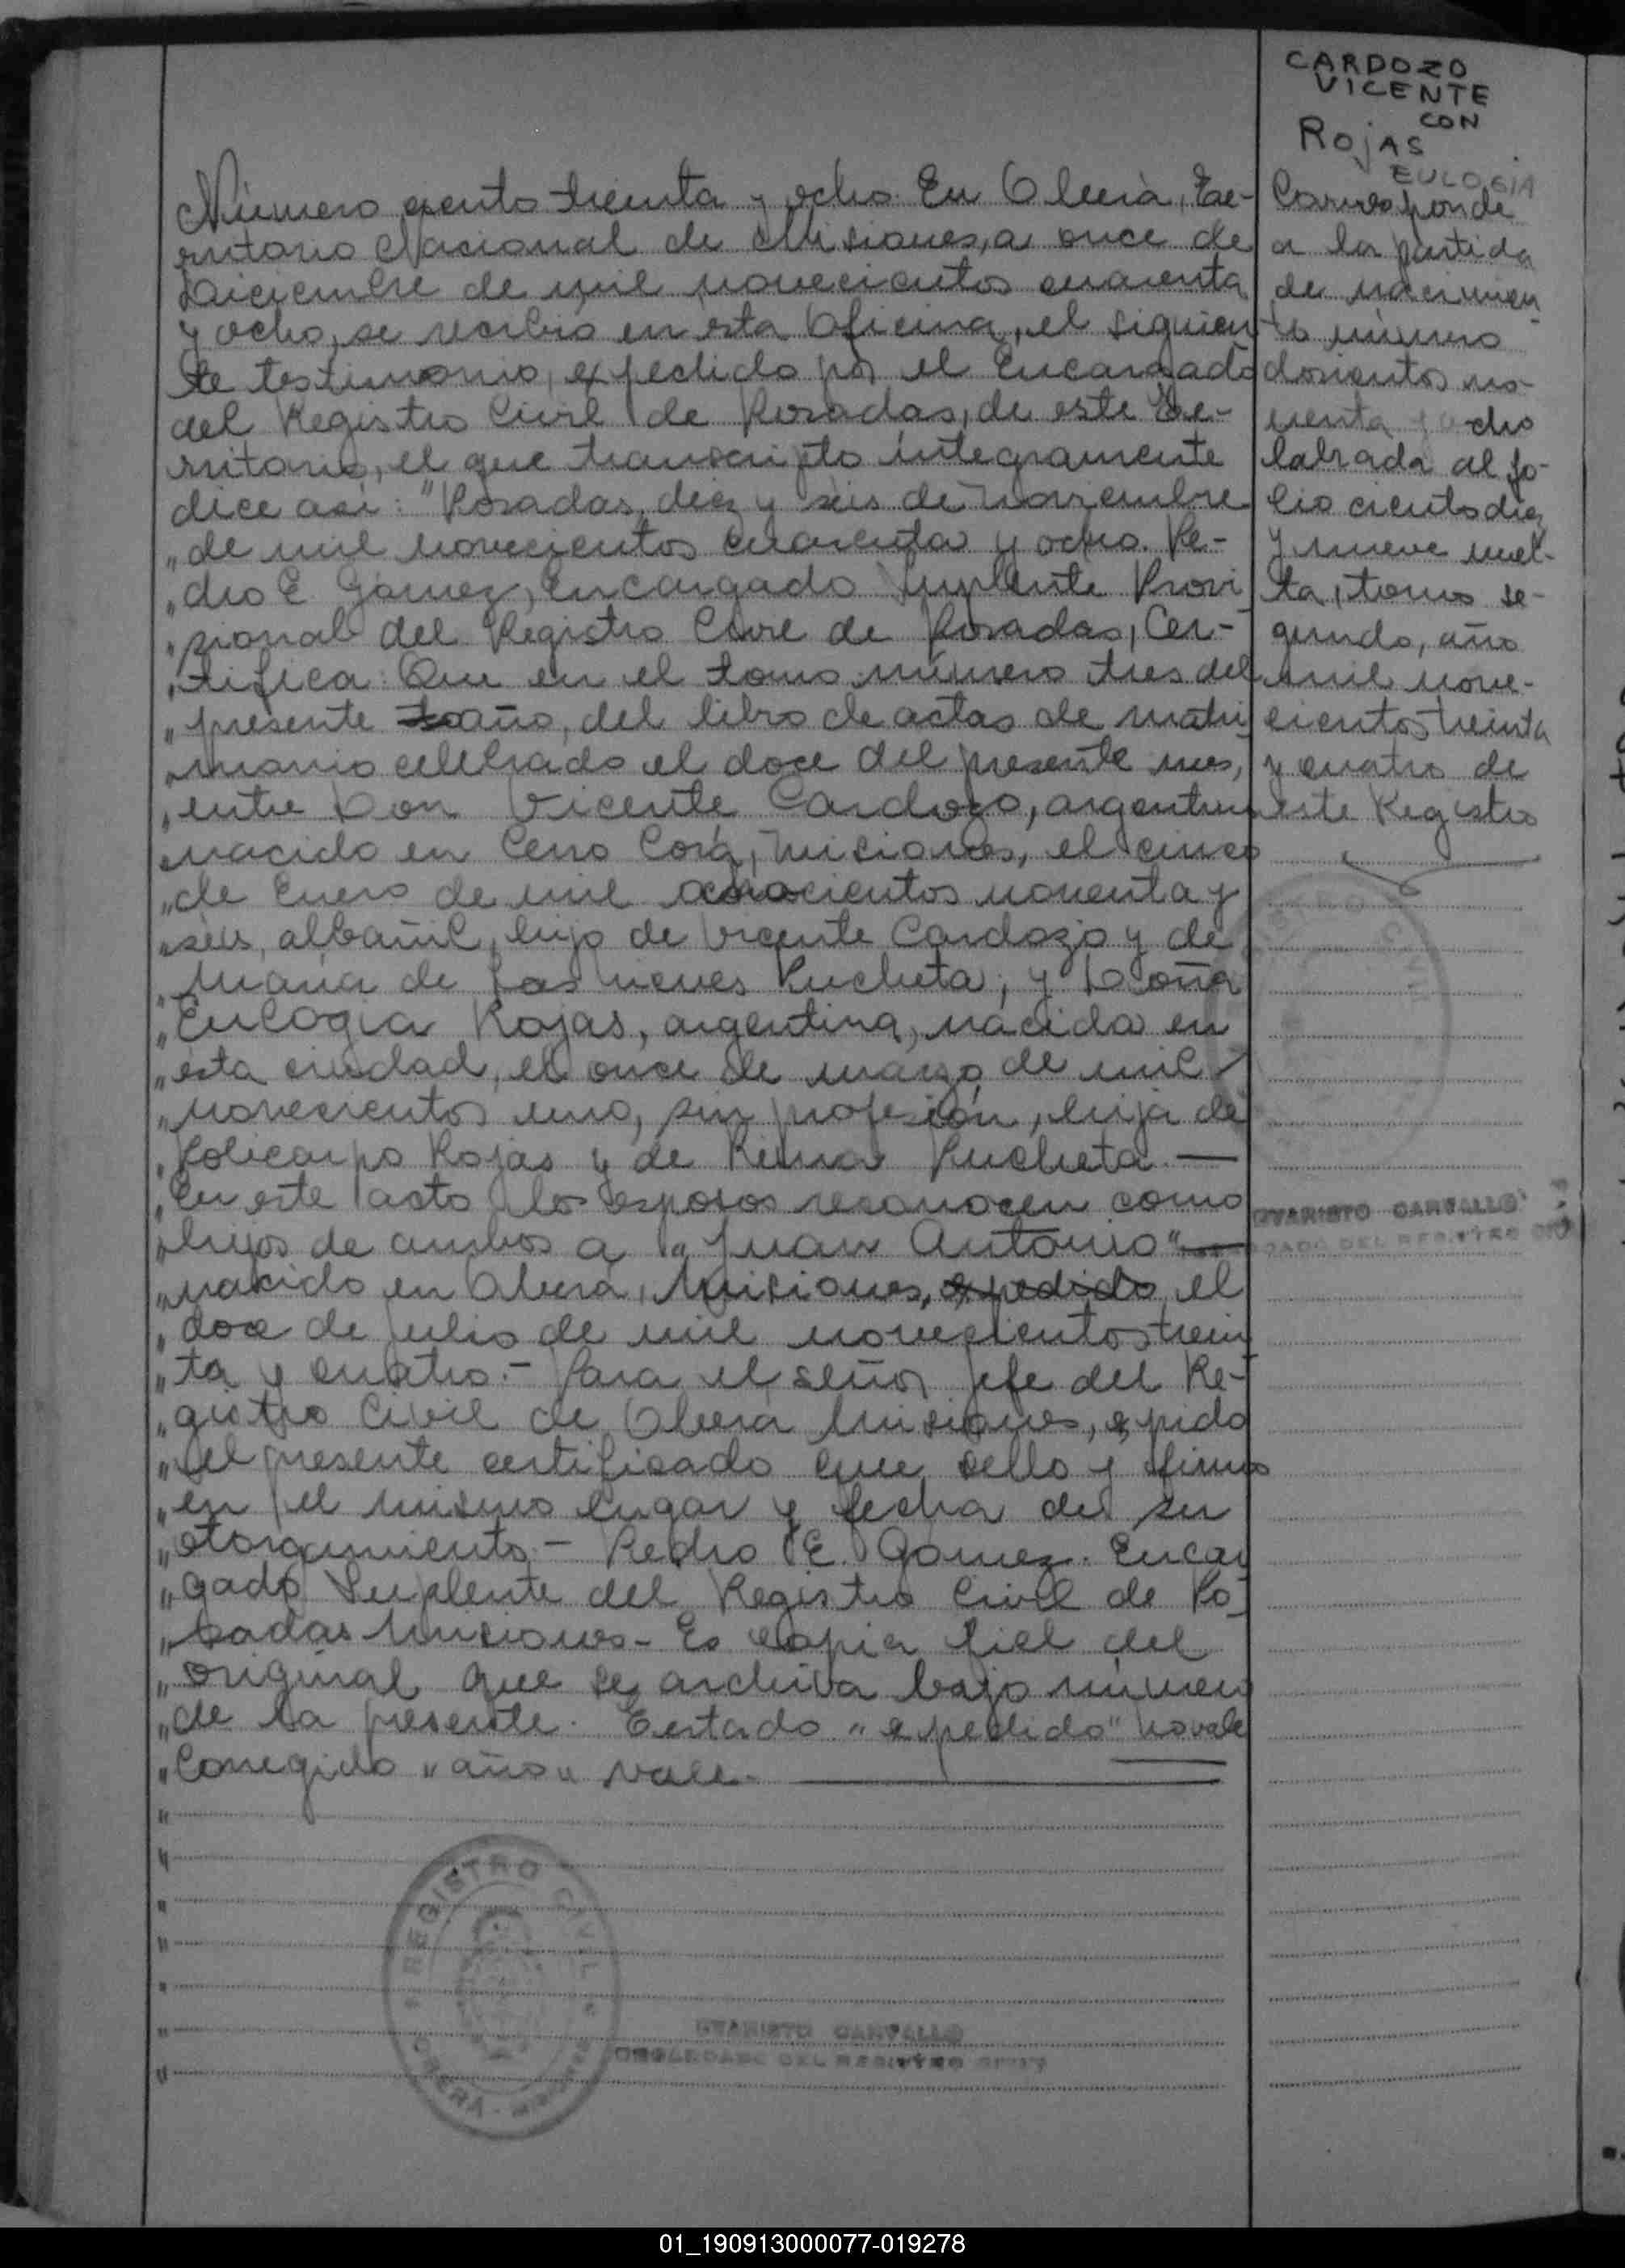 CARDOZO
VICENTE
CON
ROJAS
EULOGIA
Número ciento treinta y ocho. En Oberá, Te-
rritorio Nacional de Misiones, a once de
Diciembre de mil novecientos cuarenta
y ocho, se recibió en esta Oficina, el siguien
te testimonio, expedido por el Encargado
del Registro Civil de Posadas, de este Te-
rritorio, el que transcripto íntegramente
dice así: "Posadas, diez y seis de Noviembre
„ de mil novecientos cuarenta y ocho. Pe-
„ dro E. Gómez, Encargado Suplente Provi
„ sional del Registro Civil de Posadas, Cer-
„ tifica: Que en el tomo número tres del
„ presente año, del libro de actas de matri
„ monio celebrado el doce del presente mes,
„ entre Don Vicente Cardozo, argentino
„ nacido en Cerro Corá, Misiones, el cinco
„ de Enero de mil ochocientos noventa y
„ seis, albañil, hijo de Vicente Cardozo y de
„ María de las Nieves Rucheta; y Doña
„ Eulogia Rojas, argentina, nacida en
„ esta ciudad, el once de marzo de mil
„ novecientos uno, sin profesión, hija de
„ Policarpo Rojas y de Reina Rucheta. —
„ En este acto los esposos reconocen como
„ hijos de ambos a "Juan Antonio" —
„ nacido en Oberá, Misiones, expedido el
„ doce de Julio de mil novecientos trein
„ ta y cuatro.- Para el señor Jefe del Re-
„ gistro Civil de Oberá Misiones, expido
„ el presente certificado que sello y firmo
„ en el mismo lugar y fecha de su
„ otorgamiento.- Pedro E. Gómez. Encar
„ gado Suplente del Registro Civil de Po-
„ sadas Misiones- Es copia fiel del
„ original que se archiva bajo número
„ de la presente. Testado "expedido" no vale
„ Corregido "año" vale. —
Corresponde
a la partida
de nacimien
to número
doscientos no-
venta y ocho
labrada al fo-
lio ciento diez
y nueve vuel-
ta, tomo se-
gundo, año
mil nove-
cientos treinta
y cuatro de
este Registro
EVARISTO CARVALLO
ENCARGADO DEL REGISTRO CIVIL
REGISTRO CIVIL
OBERÁ - MISIONES
EVARISTO CARVALLO
ENCARGADO DEL REGISTRO CIVIL
01_190913000077-019278